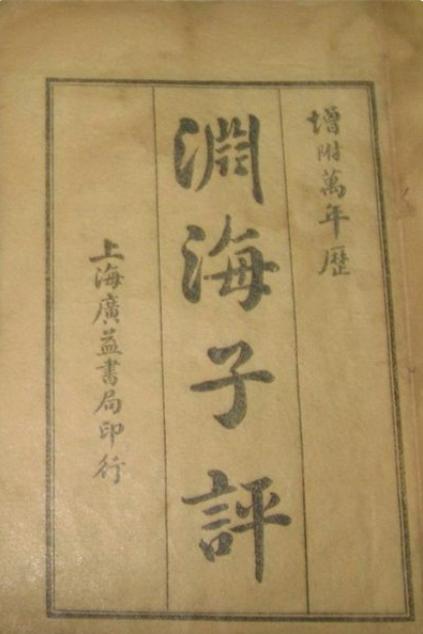 增附萬年歷
淵海子評
上海廣益書局印行